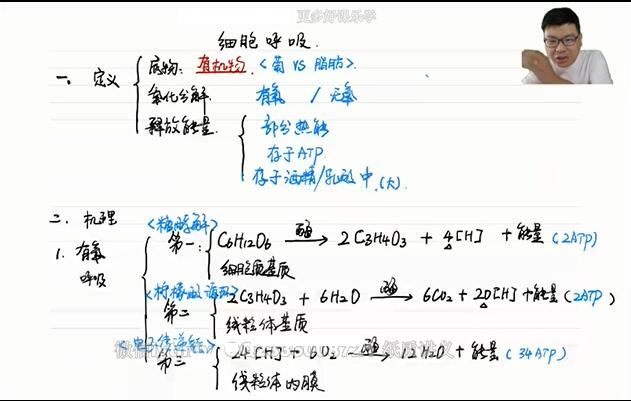 更多好课乐学
细胞呼吸.
一、定义
底物: 有机物. <葡 VS 脂肪>.
氧化分解. 有氧 / 无氧
释放能量
部分热能
存于ATP.
存于酒精/乳酸中.(大)
二、机理
1. 有氧呼吸
<糖酵解>
第一: C6H12O6 酶→ 2C3H4O3 + 4[H] +能量(2ATP)
细胞质基质
<柠檬酸循环>
第二 2C3H4O3 + 6H2O 酶→ 6CO2 + 20[H]+能量(2ATP)
线粒体基质
第三 24[H] + 6O2 酶→ 12H2O +能量(34ATP)
线粒体内膜